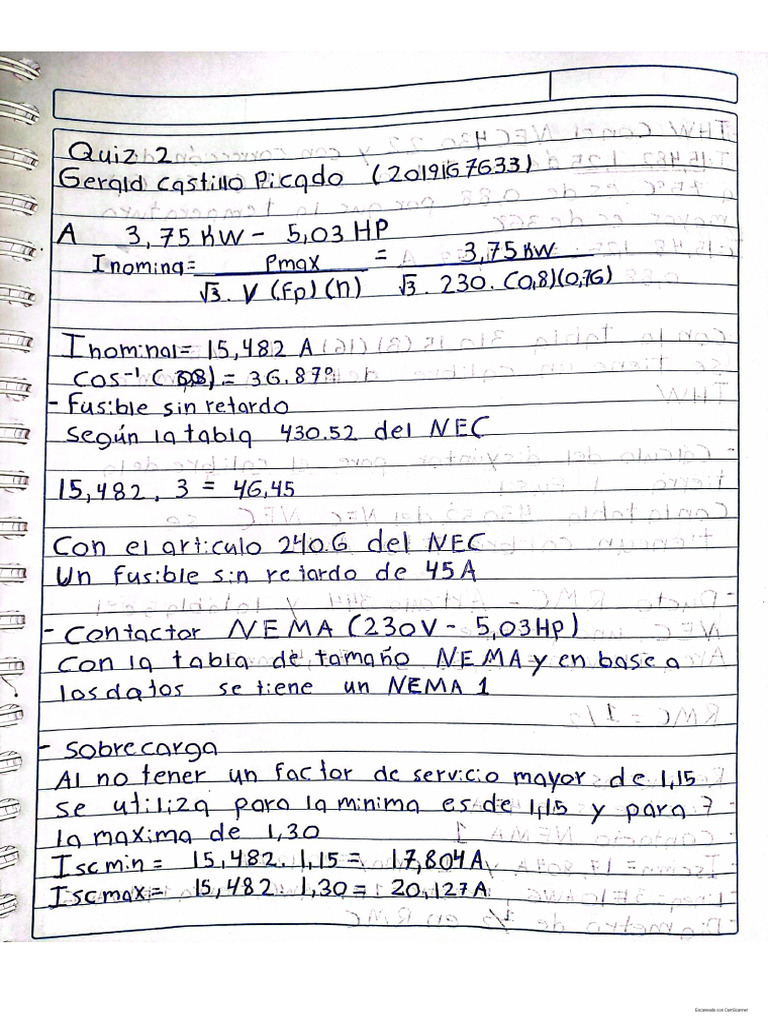 Quiz 2
Gerald Castillo Picado (2019167633)
A 3,75 KW - 5,03 HP
Inominal= Pmax / √3. V (Fp)(n) = 3,75 KW / √3. 230. (0,8)(0,76)
Inominal= 15,482 A
Cos⁻¹(0,8)= 36.87°
- Fusible sin retardo
Según la tabla 430.52 del NEC
15,482 . 3 = 46,45
Con el articulo 240.6 del NEC
Un fusible sin retardo de 45A
- Contactor NEMA (230V - 5,03Hp)
Con la tabla de tamaño NEMA y en base a
los datos se tiene un NEMA 1
- Sobrecarga
Al no tener un factor de servicio mayor de 1,15
se utiliza para la minima es de 1,15 y para
la maxima de 1,30
Iscmin = 15,482 . 1,15 = 17,804 A
Iscmax = 15,482 . 1,30 = 20,127 A
Escaneado con CamScanner